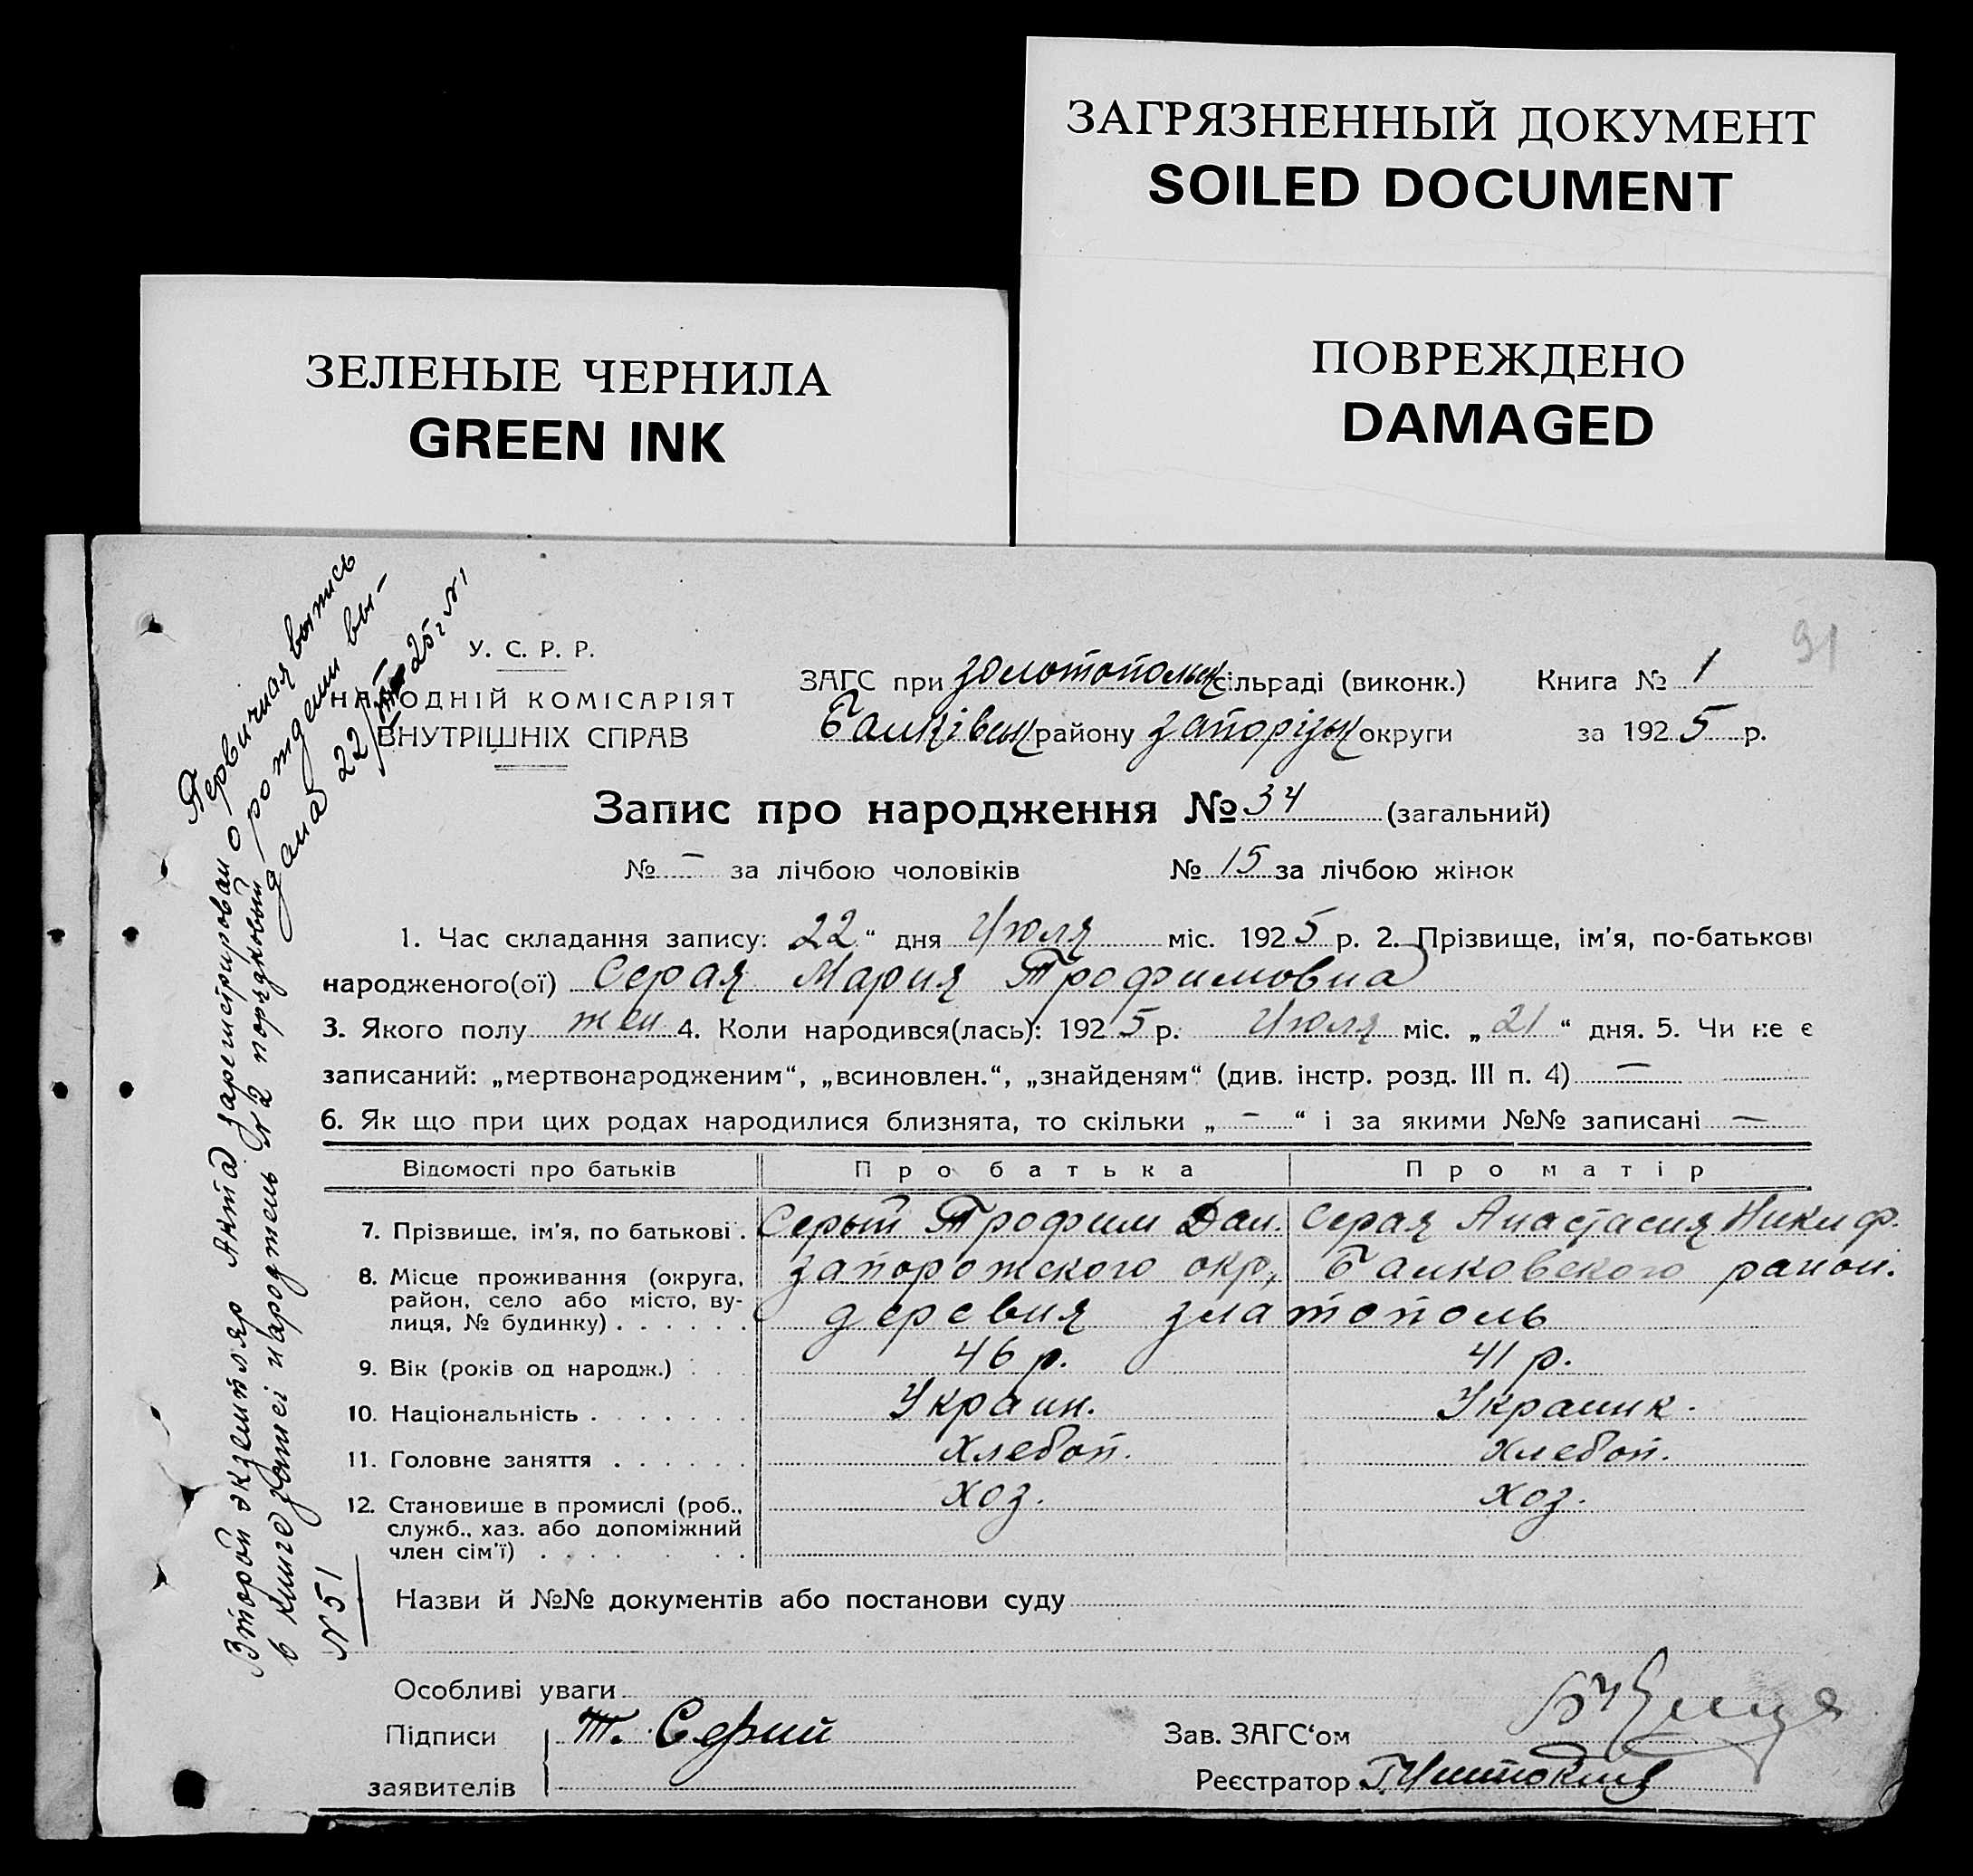 ЗАГРЯЗНЕННЫЙ ДОКУМЕНТ
SOILED DOCUMENT
ЗЕЛЕНЫЕ ЧЕРНИЛА
GREEN INK
ПОВРЕЖДЕНО
DAMAGED
91
Первичная выпись
о рождении вы-
дана 22/VII 25г. №1
У. С. Р. Р.
НАРОДНІЙ КОМІСАРІЯТ
ВНУТРІШНІХ СПРАВ
ЗАГС при Золотопольськ сільраді (виконк.) Книга № 1
Балківськ району Запорізьк округи за 1925 р.
Запис про народження № 34 (загальний)
№ – за лічбою чоловіків № 15 за лічбою жінок
1. Час складання запису: 22 “ дня Июля міс. 1925 р. 2. Прізвище, ім’я, по-батькові
народженого(ої) Серая Мария Трофимовна
3. Якого полу жен 4. Коли народився(лась): 1925 р. Июля міс. „ 21 “ дня. 5. Чи не є
записаний: „мертвонародженим“, „всиновлен.“, „знайденям“ (див. інстр. розд. III п. 4) –
6. Як що при цих родах народилися близнята, то скільки „ – “ і за якими №№ записані –
Відомості про батьків Про батька Про матір
7. Прізвище, ім’я, по батькові . Серый Трофим Дан. Серая Анастасия Никиф.
8. Місце проживання (округа, район, село або місто, ву-лиця, № будинку) . . . . . . Запорожского окр, Балковского район.
деревня Златополь
9. Вік (років од народж.) . . . 46 р. 41 р.
10. Національність . . . . . . . Украин. Украинк.
11. Головне заняття . . . . . . Хлебоп. Хлебоп.
12. Становище в промислі (роб., служб., хаз. або допоміжний член сім’ї) . . . . . . . хоз. хоз.
Назви й №№ документів або постанови суду
Особливі уваги
Підписи заявителів Т. Серий
Зав. ЗАГС‘ом
Реєстратор
Второй экземпляр Акта зарегистрирован
в книге записі народжень № 2 порядковый
№ 51